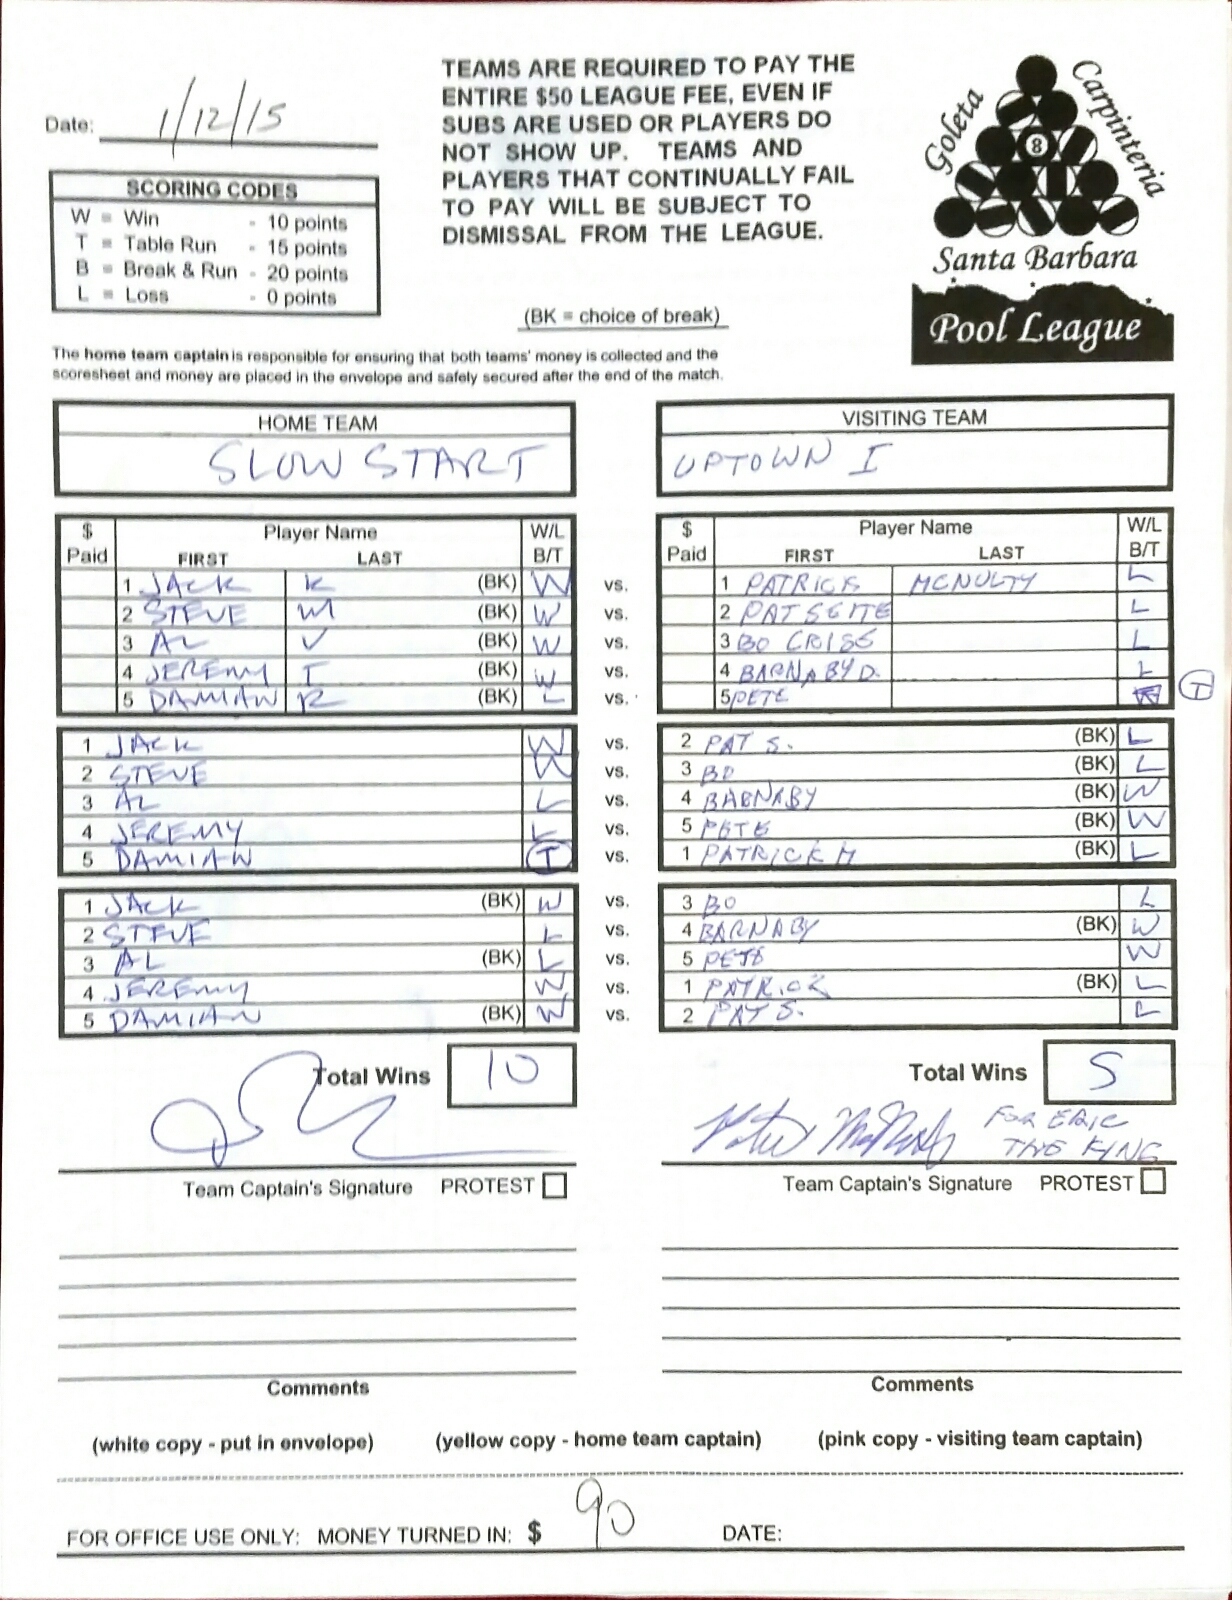 Date: 1/12/15
TEAMS ARE REQUIRED TO PAY THE
ENTIRE $50 LEAGUE FEE, EVEN IF
SUBS ARE USED OR PLAYERS DO
NOT SHOW UP. TEAMS AND
PLAYERS THAT CONTINUALLY FAIL
TO PAY WILL BE SUBJECT TO
DISMISSAL FROM THE LEAGUE.
Goleta
Carpinteria
8
Santa Barbara
Pool League
SCORING CODES
W = Win - 10 points
T = Table Run - 15 points
B = Break & Run - 20 points
L = Loss - 0 points
(BK = choice of break)
The home team captain is responsible for ensuring that both teams' money is collected and the
scoresheet and money are placed in the envelope and safely secured after the end of the match.
HOME TEAM VISITING TEAM
SLOW START UPTOWN I
$ Paid Player Name FIRST LAST W/L B/T $ Paid Player Name FIRST LAST W/L B/T
1 JACK K (BK) W vs. 1 PATRICK MCNULTY L
2 STEVE M (BK) W vs. 2 PAT SETTE L
3 AL V (BK) W vs. 3 BO CRISS L
4 JEREMY T (BK) W vs. 4 BARNABY D. L
5 DAMIAN R (BK) L vs. 5 PETE T
1 JACK W vs. 2 PAT S. (BK) L
2 STEVE W vs. 3 BO (BK) L
3 AL L vs. 4 BARNABY (BK) W
4 JEREMY L vs. 5 PETE (BK) W
5 DAMIAN T vs. 1 PATRICK M (BK) L
1 JACK (BK) W vs. 3 BO L
2 STEVE L vs. 4 BARNABY (BK) W
3 AL (BK) L vs. 5 PETE W
4 JEREMY W vs. 1 PATRICK (BK) L
5 DAMIAN (BK) W vs. 2 PAT S. L
Total Wins 10 Total Wins 5
FOR ERIC
THE KING
Team Captain's Signature PROTEST Team Captain's Signature PROTEST
Comments Comments
(white copy - put in envelope) (yellow copy - home team captain) (pink copy - visiting team captain)
FOR OFFICE USE ONLY: MONEY TURNED IN: $ 90 DATE: